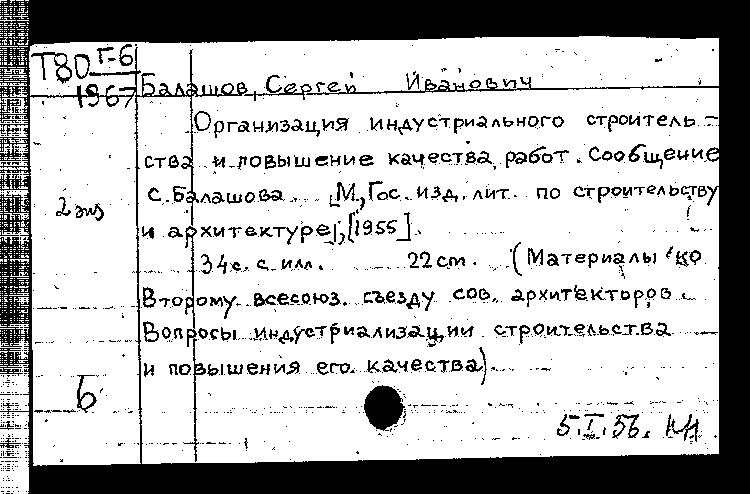 Т80 Г-6
1967
Балашов, Сергей Иванович
Организация индустриального строитель-
ства и повышение качества работ. Сообщение
С. Балашова. [М., Гос. изд. лит. по строительству
2 экз
и архитектуре], [1955].
34 с. с илл. 22 см. (Материалы ко
Второму всесоюз. съезду сов. архитекторов.
Вопросы индустриализации строительства
и повышения его качества).
6
5.I.56.